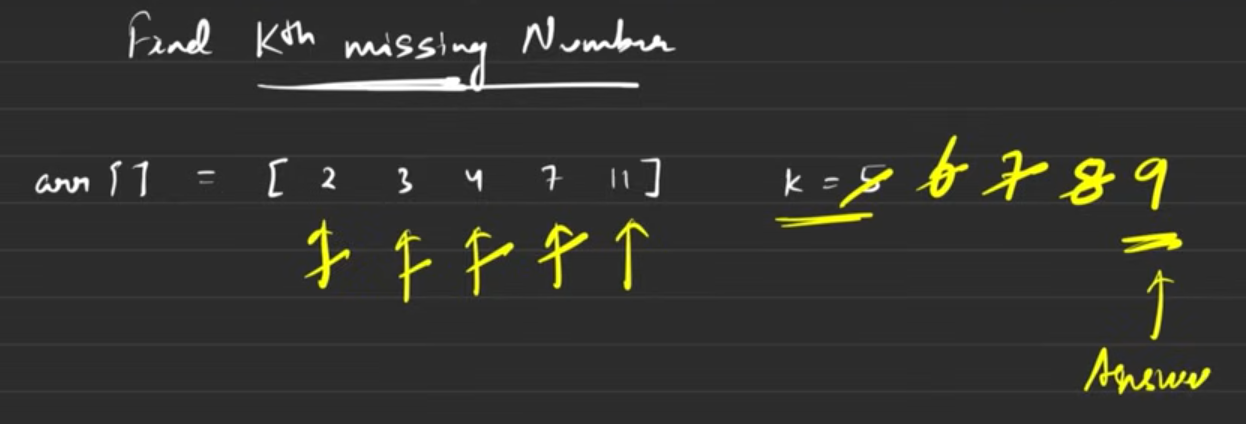 Find Kth missing Number
arr[] = [ 2 3 4 7 11 ] K = 5 6 7 8 9
Answer